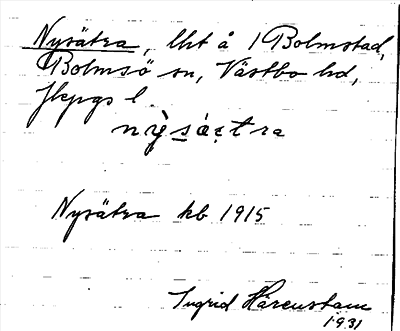 Nysätra, lht å 1 Bolmstad,
Bolmsö sn, Västbo hd,
Jkpgs l.
nỳsáetra
Nysätra kb 1915
Ingrid Härenstam
1931